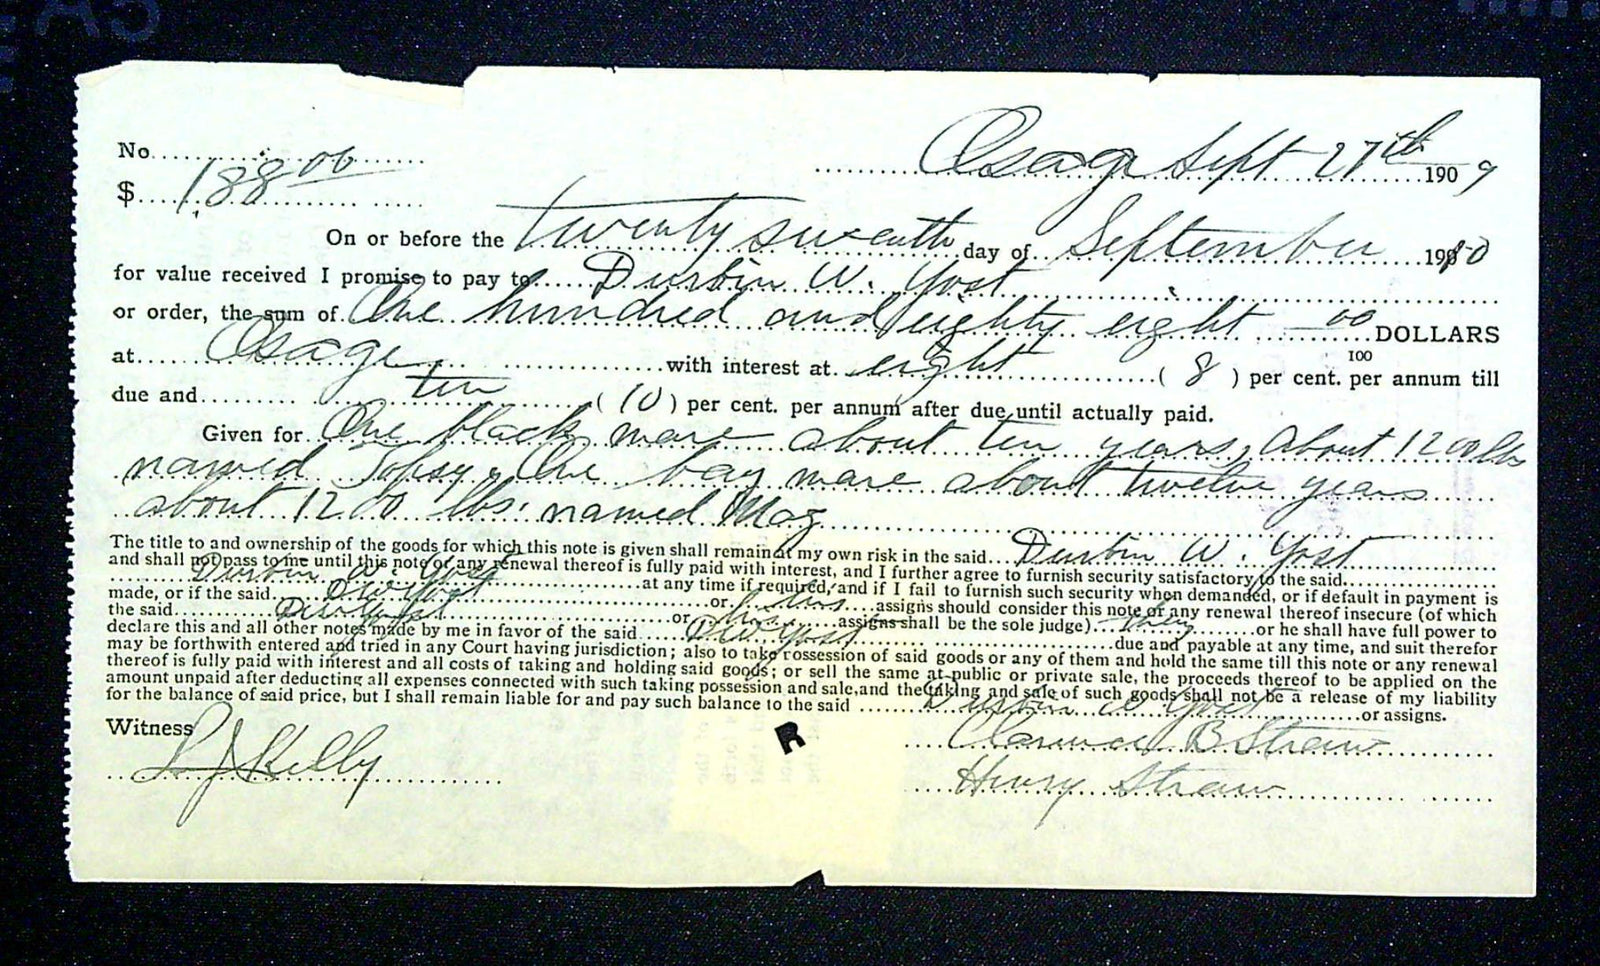 No. Osage Sept 27th 1909
$ 188 00
On or before the twenty seventh day of September 1910
for value received I promise to pay to Durbin W. Yost
or order, the sum of One hundred and eighty eight 00/100 DOLLARS
at Osage with interest at eight ( 8 ) per cent. per annum till
due and ten ( 10 ) per cent. per annum after due until actually paid.
Given for One black mare about ten years, about 1200 lbs
named Topsy, One bay mare about twelve years
about 1200 lbs. named Mag
The title to and ownership of the goods for which this note is given shall remain at my own risk in the said Durbin W. Yost
and shall not pass to me until this note or any renewal thereof is fully paid with interest, and I further agree to furnish security satisfactory to the said
Durbin W. Yost at any time if required, and if I fail to furnish such security when demanded, or if default in payment is
made, or if the said D W Yost or his assigns should consider this note or any renewal thereof insecure (of which
the said D W Yost or his assigns shall be the sole judge) they or he shall have full power to
declare this and all other notes made by me in favor of the said D W Yost due and payable at any time, and suit therefor
may be forthwith entered and tried in any Court having jurisdiction; also to take rossession of said goods or any of them and hold the same till this note or any renewal
thereof is fully paid with interest and all costs of taking and holding said goods; or sell the same at public or private sale, the proceeds thereof to be applied on the
amount unpaid after deducting all expenses connected with such taking possession and sale, and the taking and sale of such goods shall not be a release of my liability
for the balance of said price, but I shall remain liable for and pay such balance to the said Durbin W Yost or assigns.
Witness Clarence B Straw
L J Kelly Henry Straw